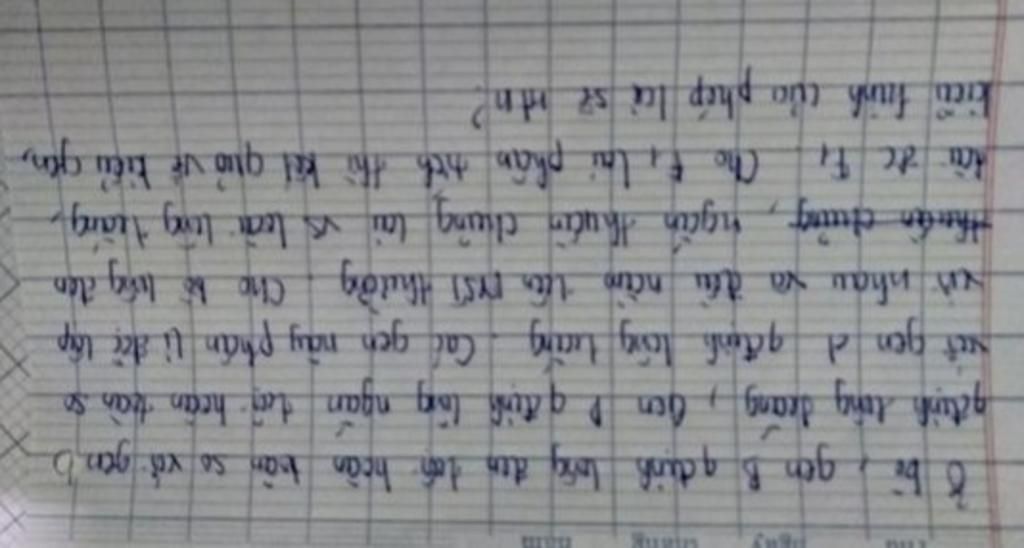 Thứ ngày tháng năm
Ở bò, gen B qđịnh lông đen trội hoàn toàn so với gen b
qđịnh lông trắng, Gen D qđịnh lông ngắn trội hoàn toàn so
với gen d qđịnh lông trắng. Các gen này phân li độc lập
với nhau và đều nằm trên NST thường. Cho bò lông đen
thuần chủng, ngắn thuần chủng lai vs loài lông trắng,
đc F1. Cho F1 lai phân tích thì kết quả về kiểu gen,
kiểu hình của phép lai sẽ ntn?